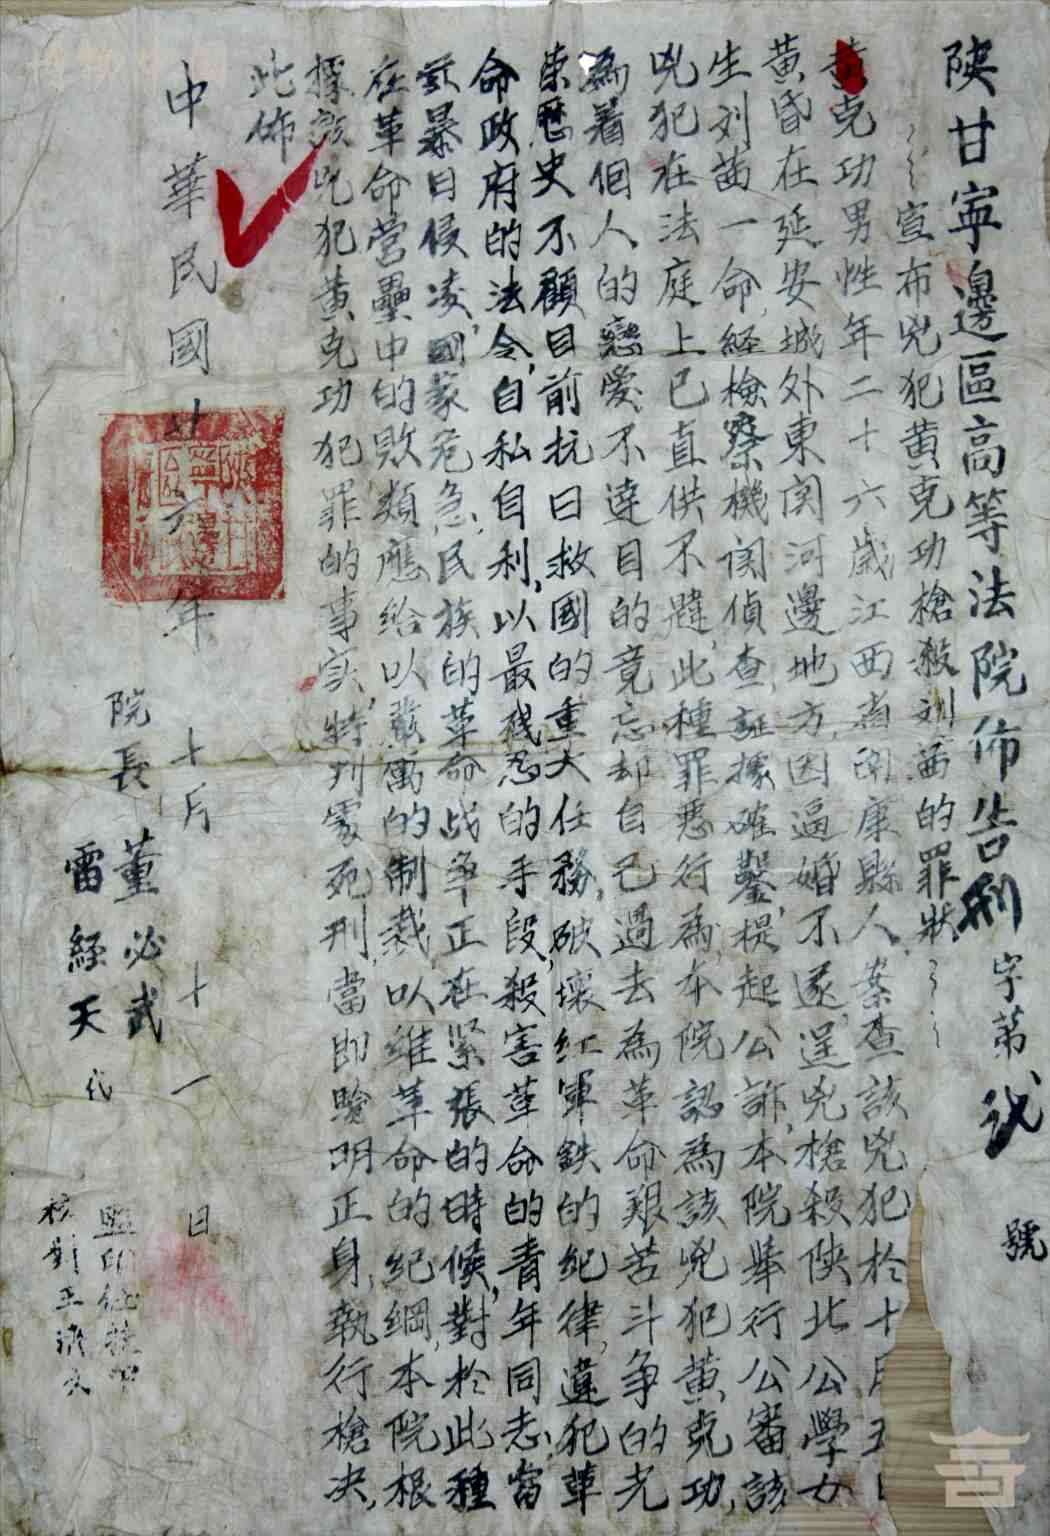 陝甘寧邊區高等法院佈告刑字第 號
宣布兇犯黄克功槍殺刘茜的罪狀
黄克功男性年二十六歲江西省南康縣人,案查該兇犯於十月五日
黄昏在延安城外東関河邊地方,因逼婚不遂,逞兇槍殺陝北公學女
生刘茜一命,経檢察機関偵查,証據確鑿,提起公訴,本院舉行公審,該
兇犯在法庭上已直供不諱,此種罪惡行為,本院認為該兇犯黄克功,
為着個人的戀愛不達目的竟忘却自己過去為革命艱苦斗争的光
荣歷史不顧目前抗日救國的重大任務,破壞紅軍鉄的紀律,違犯革
命政府的法令,自私自利,以最殘忍的手段,殺害革命的青年同志,當
兹暴日侵凌,國家危急,民族的革命战争正在紧張的時候,對於此種
在革命营壘中的敗類應給以嚴厲的制裁,以維革命的紀綱,本院根
據該兇犯黄克功犯罪的事实,特判處死刑,當即驗明正身,執行槍决,
此佈
中華民國廿六年十月十一日
院長 董必武
雷経天代
監印
校對王